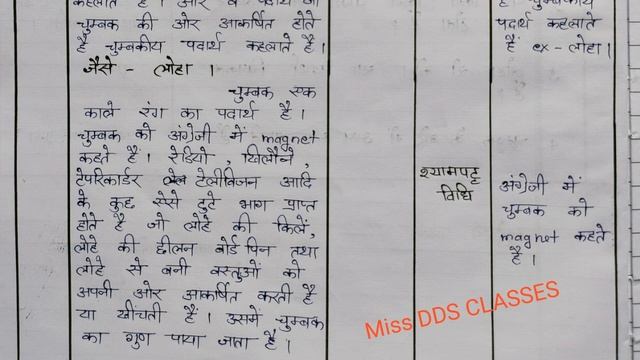 कहलाता है। और वे पदार्थ जो
चुम्बक की ओर आकर्षित होते
है चुम्बकीय पदार्थ कहलाते है।
जैसे - लोहा।
चुम्बक एक
काले रंग का पदार्थ है।
चुम्बक को अंग्रेजी में magnet
कहते हैं। रेडियो, खिलौने,
टेपरिकार्डर टेलीविजन आदि
के कुछ ऐसे टुटे भाग प्राप्त
होते है जो लोहे की किलें,
लोहे की छीलन बोर्ड पिन तथा
लोहे से बनी वस्तुओं को
अपनी ओर आकर्षित करती है
या खींचती हैं। उसमें चुम्बक
का गुण पाया जाता है।
श्यामपट्ट
विधि
है चुम्बकीय
पदार्थ कहलाते
हैं ex - लोहा।
अंग्रेजी में
चुम्बक को
magnet कहते
है।
Miss DDS CLASSES